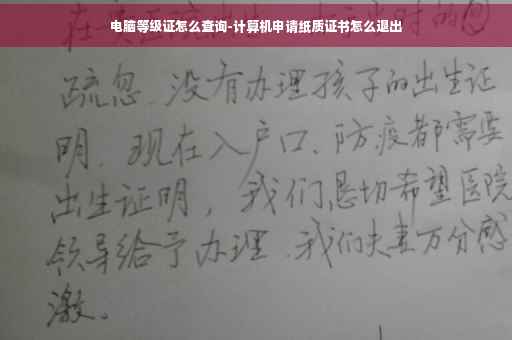 电脑等级证怎么查询-计算机申请纸质证书怎么退出
疏忽、没有办理孩子的出生证
明、现在入户口、防疫都需要
出生证明，我们恳切希望医院
领导给予办理、我们夫妻万分感
激。